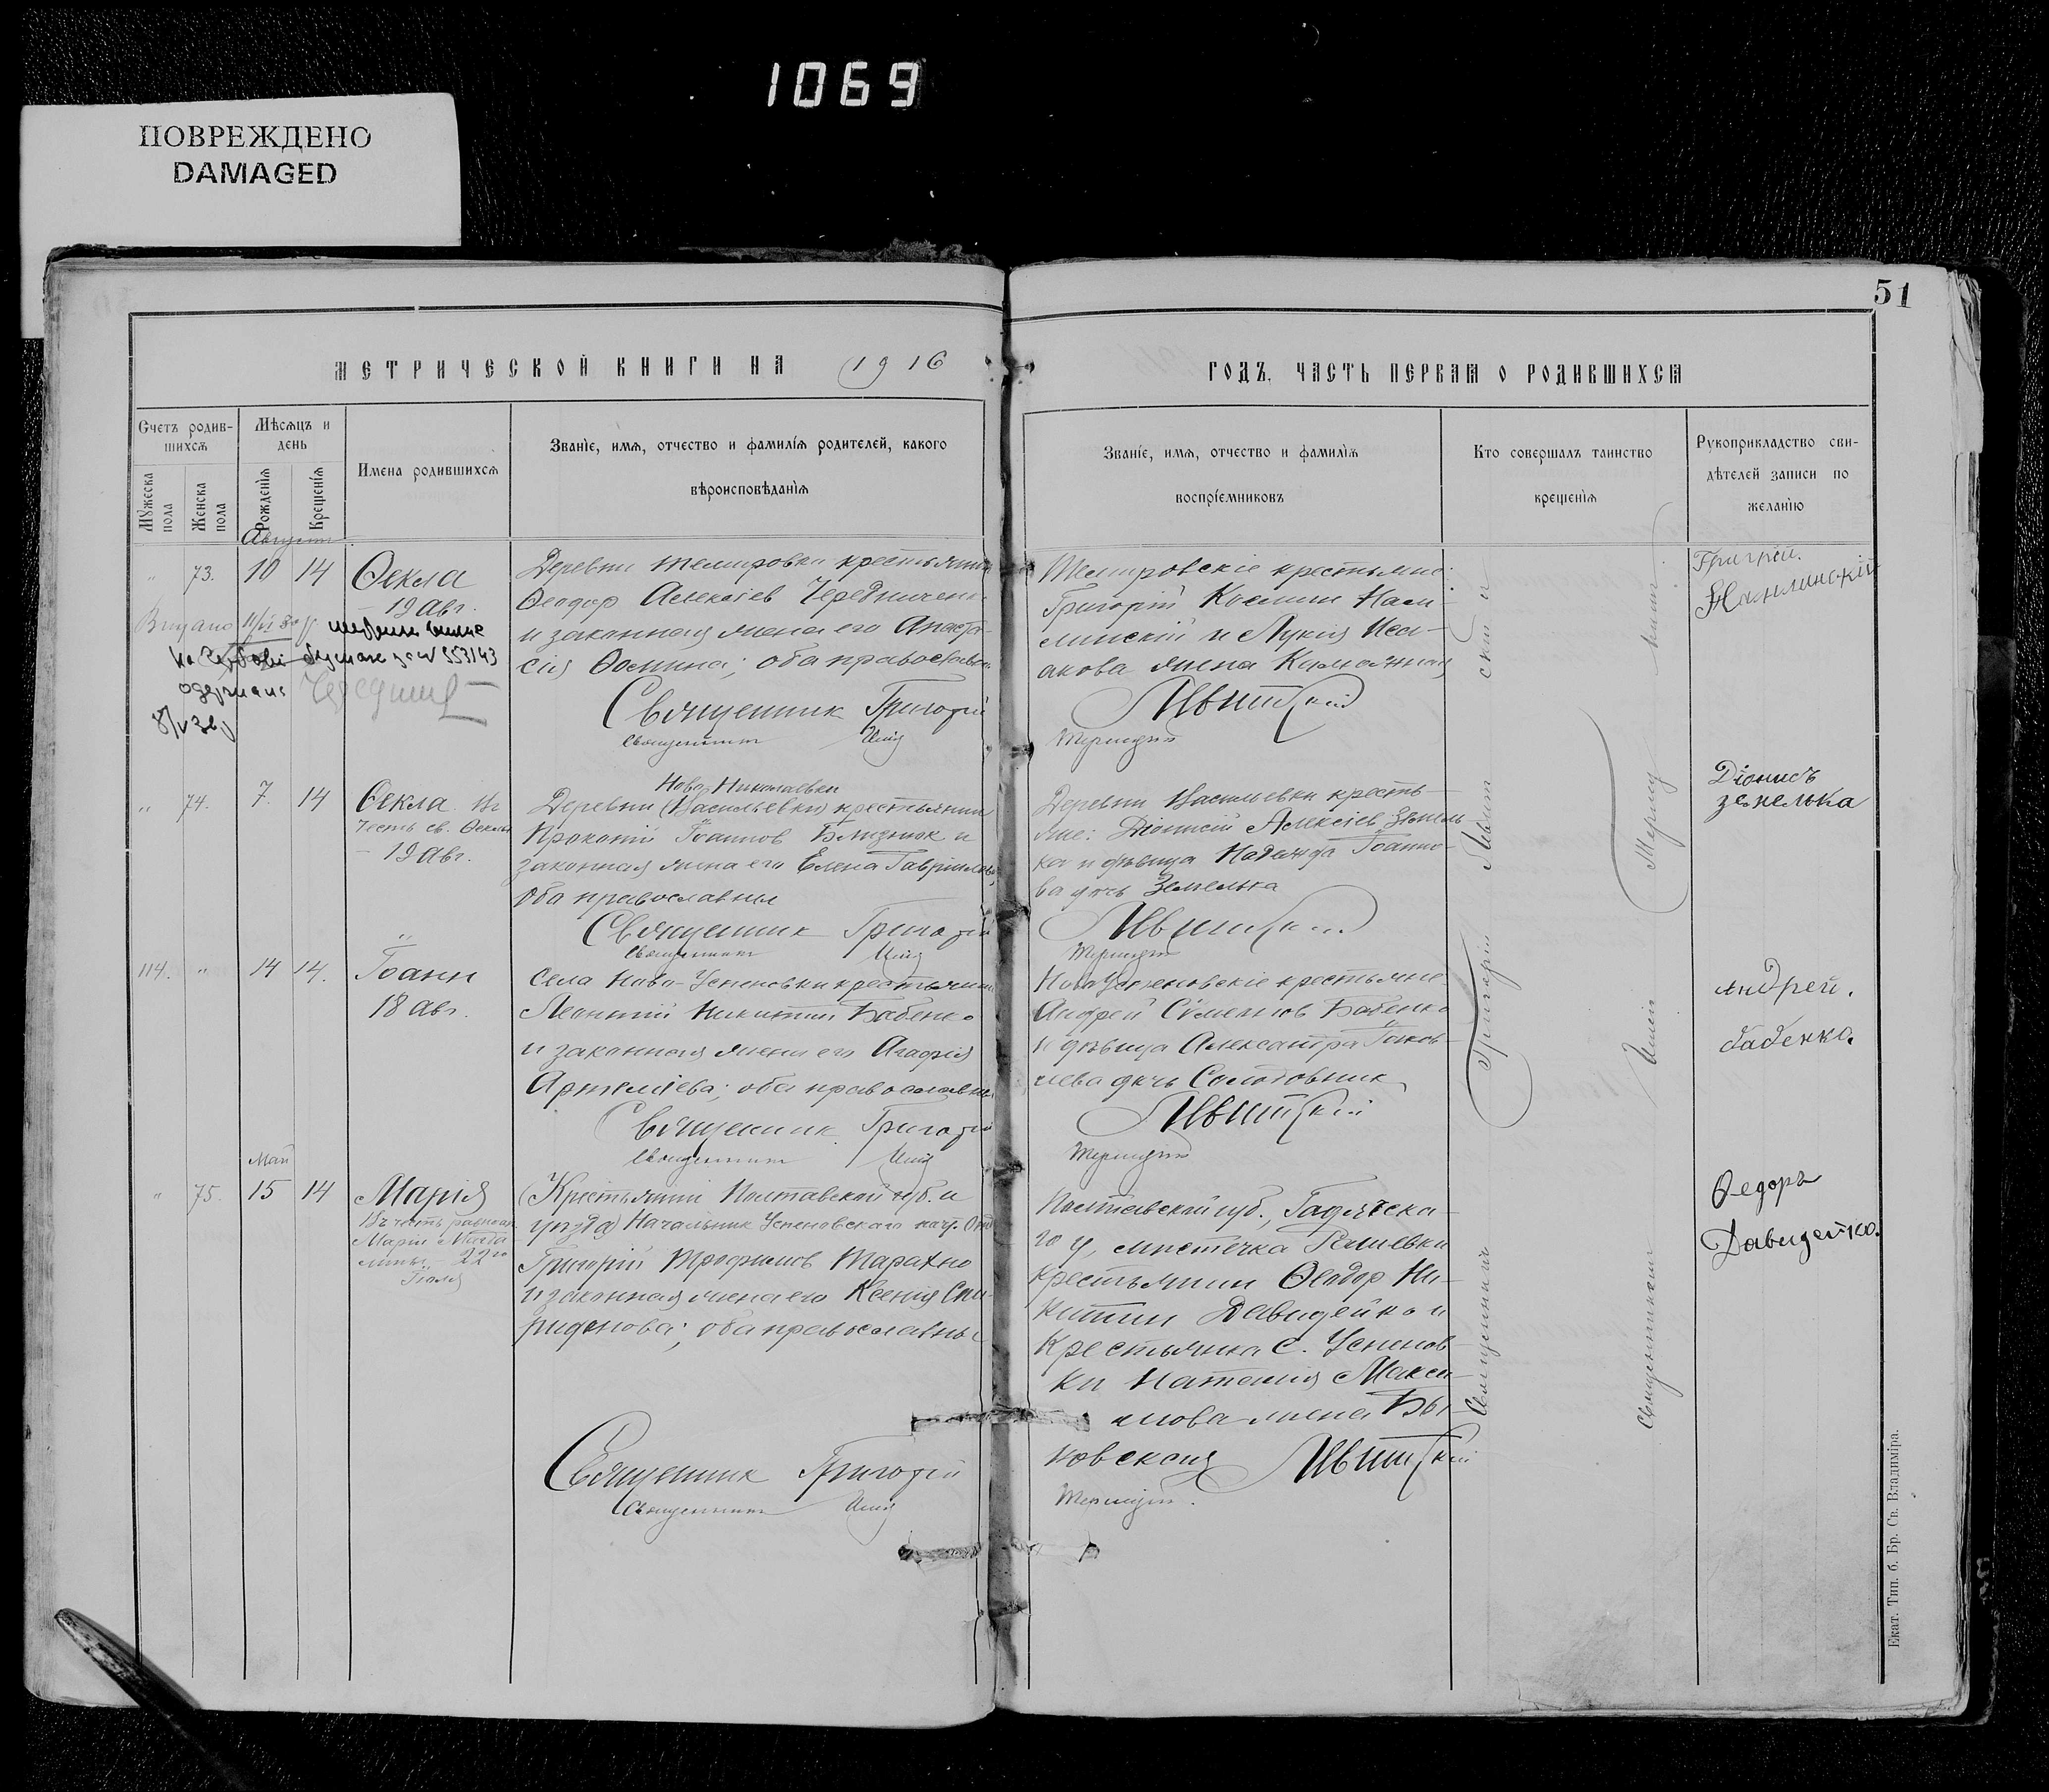 1069
ПОВРЕЖДЕНО
DAMAGED
51
МЕТРИЧЕСКОЙ КНИГИ НА 1916
ГОДЪ, ЧАСТЬ ПЕРВАЯ О РОДИВШИХСЯ
Счетъ родив-
шихся
Мужеска пола
Женска пола
Мѣсяцъ и
день
Рожденія
Крещенія
Имена родившихся
Званіе, имя, отчество и фамилія родителей, какого
вѣроисповѣданія
Званіе, имя, отчество и фамилія
воспріемниковъ
Кто совершалъ таинство
крещенія
Рукоприкладство сви-
дѣтелей записи по
желанію
Августъ
" 73. 10 14 Ѳекла
19 Авг.
Деревни Темировки крестьянин
Ѳеодор Алексіев Чередничен
и законная жена его Анаста-
сія Ѳомина; оба православн
Священник Григорій
Темировскіе крестьяне:
Григорій Космин Нам-
линскій и Лукія Иса-
акова жена
Ивитскій
Григрій.
" 74. 7. 14 Ѳекла
честь св. Ѳеклы
19 Авг.
Ново-Николаевки
Деревни (Васильевки) крестьянин
Прокопій Іоаннов Близнюк и
законная жена его Елена Гавриилова
оба православны
Священник Григорій
Деревни Васильевки кресть-
яне: Діонисій Алексіев Земель-
ка и дѣвица Надежда Іоанно-
ва дочь Земелька
Ивитскій
Діонисъ
земелька
114. " 14 14. Іоанн
18 Авг.
Села Ново-Успеновки крестьянин
Леонтій Никитин Бабенко
и законная жена его Агафія
Артеміева; оба православны
Священник Григорій
Ново Успеновскіе крестьяне
Андрей Сѵмеонов Бабенко
и дѣвица Александра Іаков-
лева дочь Солодовник
Ивитскій
Андрей.
бабенко.
Май
" 75. 15 14 Марія
Въ честь равноап
Маріи Магда-
лины 22го
Іюля
(Крестьянин Полтавской губ. и
уѣзда) Начальник Успеновскаго
Григорій Трофимов Тарахно
и законная жена его Ксенія Спи-
ридонова; оба православны
Священник Григорій
Полтавской губ., Гадячска-
го у, мѣстечка
крестьянин Ѳеодор Ни-
китин Давидейко и
крестьянка с. Успенов-
ки Наталія Макси-
мова жена Бы-
ковская Ивитскій
Ѳедоръ
Давидейко.
Священник Григорій
Екат. Тип. б. Бр. Св. Владиміра.